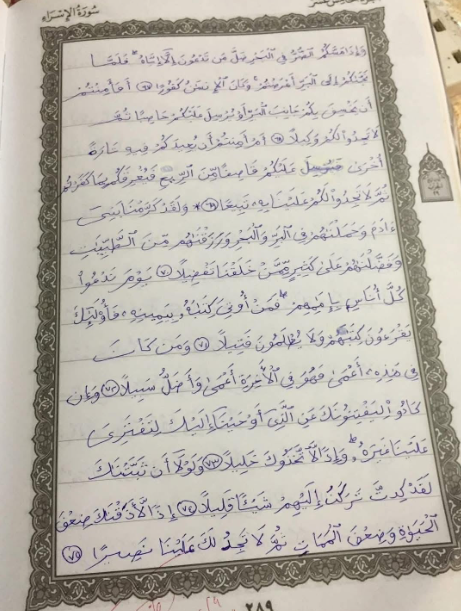 سُورَةُ الإِسْرَاء
وَإِذَا مَسَّكُمُ الضُّرُّ فِي الْبَحْرِ ضَلَّ مَن تَدْعُونَ إِلَّا إِيَّاهُ فَلَمَّا
نَجَّىٰكُمْ إِلَى الْبَرِّ أَعْرَضْتُمْ وَكَانَ الْإِنسَٰنُ كَفُورًا ٦٧ أَفَأَمِنتُمْ
أَن يَخْسِفَ بِكُمْ جَانِبَ الْبَرِّ أَوْ يُرْسِلَ عَلَيْكُمْ حَاصِبًا ثُمَّ
لَا تَجِدُوا لَكُمْ وَكِيلًا ٦٨ أَمْ أَمِنتُمْ أَن يُعِيدَكُمْ فِيهِ تَارَةً
أُخْرَىٰ فَيُرْسِلَ عَلَيْكُمْ قَاصِفًا مِّنَ الرِّيحِ فَيُغْرِقَكُم بِمَا كَفَرْتُمْ
ثُمَّ لَا تَجِدُوا لَكُمْ عَلَيْنَا بِهِ تَبِيعًا ٦٩ وَلَقَدْ كَرَّمْنَا بَنِي
ءَادَمَ وَحَمَلْنَٰهُمْ فِي الْبَرِّ وَالْبَحْرِ وَرَزَقْنَٰهُم مِّنَ الطَّيِّبَٰتِ
وَفَضَّلْنَٰهُمْ عَلَىٰ كَثِيرٍ مِّمَّنْ خَلَقْنَا تَفْضِيلًا ٧٠ يَوْمَ نَدْعُوا
كُلَّ أُنَاسٍ بِإِمَٰمِهِمْ فَمَنْ أُوتِيَ كِتَٰبَهُ بِيَمِينِهِ فَأُولَٰئِكَ
يَقْرَءُونَ كِتَٰبَهُمْ وَلَا يُظْلَمُونَ فَتِيلًا ٧١ وَمَن كَانَ
فِي هَٰذِهِ أَعْمَىٰ فَهُوَ فِي الْآخِرَةِ أَعْمَىٰ وَأَضَلُّ سَبِيلًا ٧٢ وَإِن
كَادُوا لَيَفْتِنُونَكَ عَنِ الَّذِي أَوْحَيْنَا إِلَيْكَ لِتَفْتَرِيَ
عَلَيْنَا غَيْرَهُ وَإِذًا لَّاتَّخَذُوكَ خَلِيلًا ٧٣ وَلَوْلَا أَن ثَبَّتْنَٰكَ
لَقَدْ كِدتَّ تَرْكَنُ إِلَيْهِمْ شَيْـًٔا قَلِيلًا ٧٤ إِذًا لَّأَذَقْنَٰكَ ضِعْفَ
الْحَيَوٰةِ وَضِعْفَ الْمَمَاتِ ثُمَّ لَا تَجِدُ لَكَ عَلَيْنَا نَصِيرًا ٧٥
٢٨٩